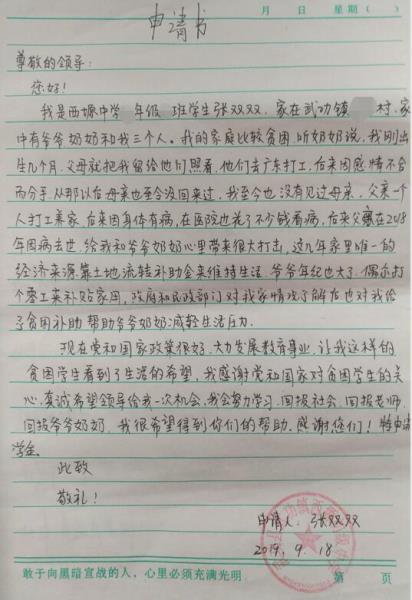 月 日 星期( )
申请书
尊敬的领导:
您好!
我是西塬中学 年级 班学生张双双,家在武功镇 村,家
中有爷爷奶奶和我三个人。我的家庭比较贫困,听奶奶说,我刚出
生几个月,父母就把我留给他们照看,他们去广东打工,后来因感情不合
而分手,从那以后母亲也至今没回来过,我至今也没有见过母亲,父亲一个
人打工养家,后来因身体有病,在医院也花了不少钱看病,后来父亲在2018
年因病去世,给我和爷爷奶奶心里带来很大打击,这几年家里唯一的
经济来源靠土地流转补助金来维持生活,爷爷年纪也大了,偶尔打
个零工来补贴家用,政府和民政部门对我家情况了解后也对我给
予贫困补助,帮助爷爷奶奶减轻生活压力.
现在党和国家政策很好,大力发展教育事业,让我这样的
贫困学生看到了生活的希望,我感谢党和国家对贫困学生的关
心,真诚希望领导给我一次机会,我会努力学习,回报社会,回报老师,
回报爷爷奶奶,我很希望得到你们的帮助,感谢您们!特申请
学金.
此致
敬礼!
申请人:张双双
2019.9.18
敢于向黑暗宣战的人,心里必须充满光明 第 页